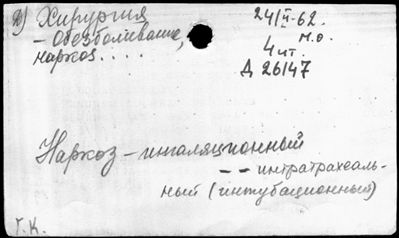 2) Хирургия
- Обезболивание,
наркоз....
24/V-62.
м.о.
4 чт.
Д 26147
Наркоз - ингаляционный
- - интратрахеаль-
ный (интубационный)
Т.К.